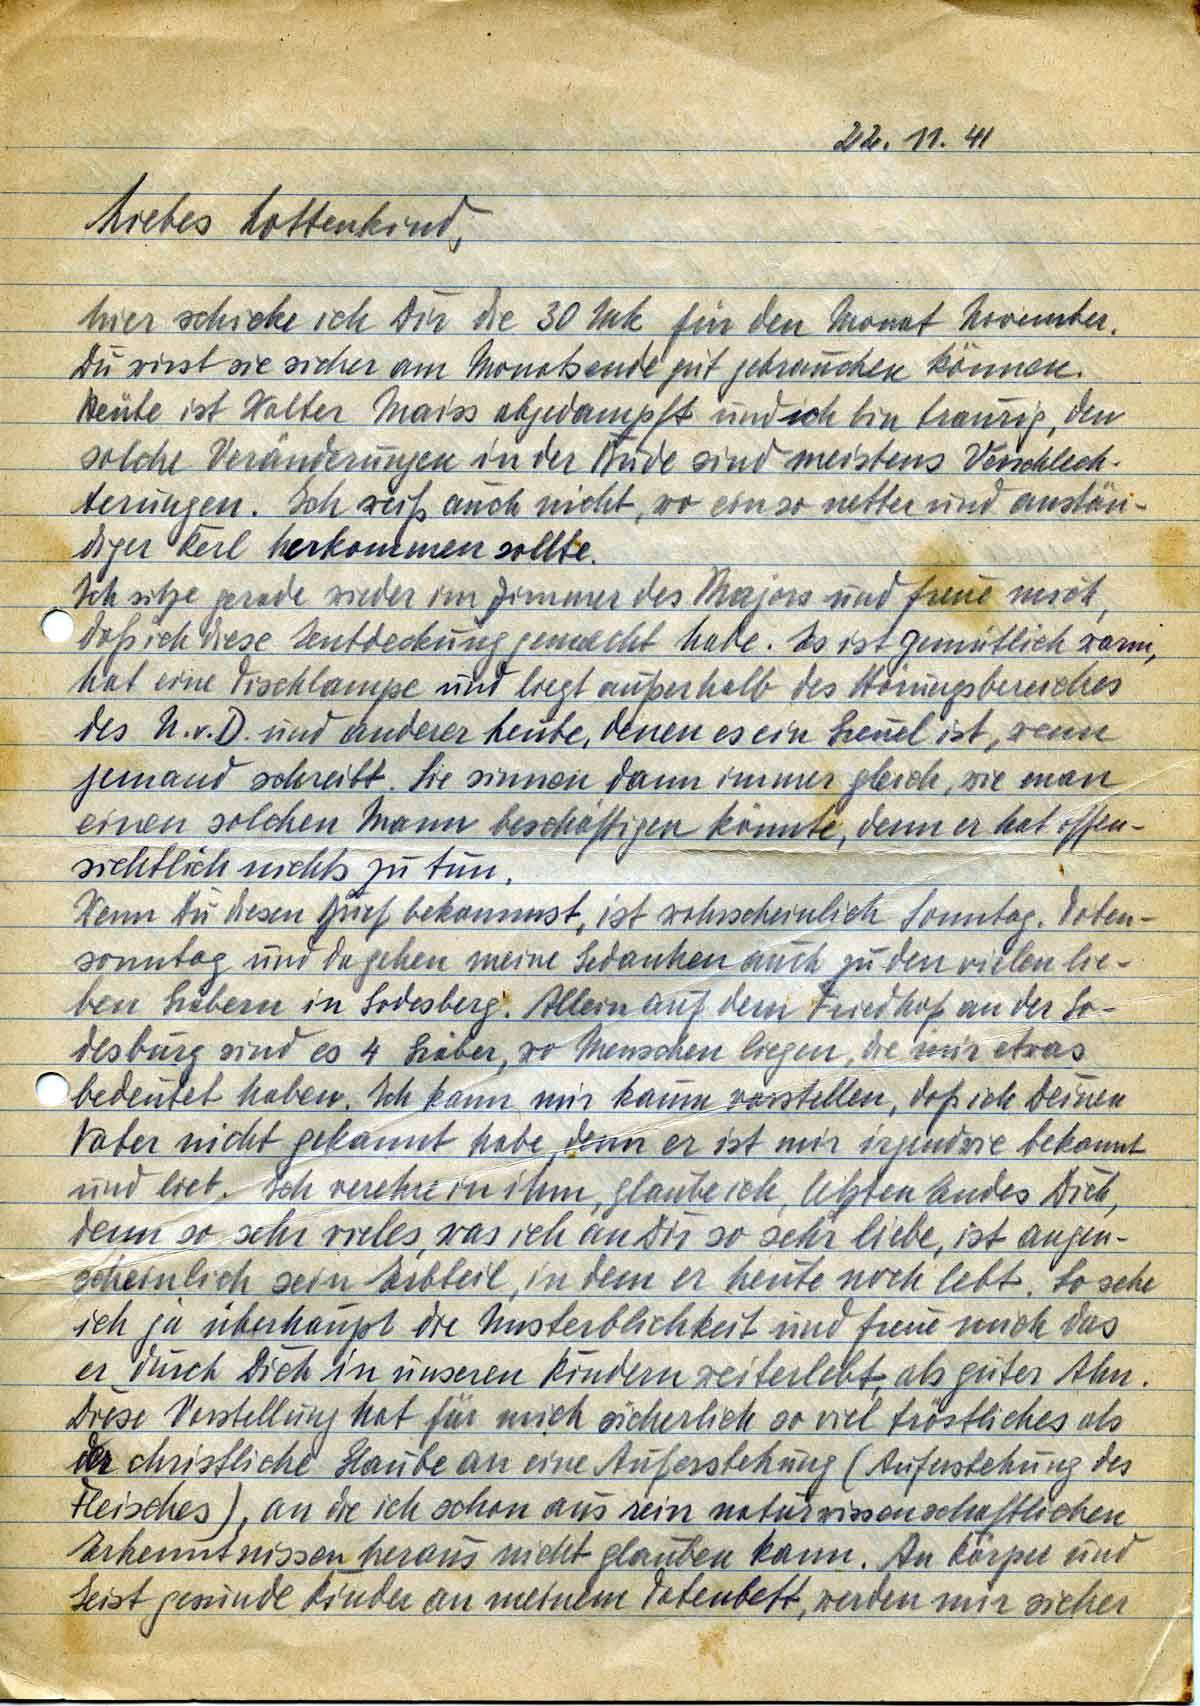 22. 11. 41
Liebes Lottenkind,
hier schicke ich Dir die 30 Mk für den Monat November.
Du wirst sie sicher am Monatsende gut gebrauchen können.
Heute ist Walter Maiss abgedampft und ich bin traurig, den
solche Veränderungen in der Bude sind meistens Verschlech-
terungen. Ich weiß auch nicht, wo ein so netter und anstän-
diger Kerl herkommen sollte.
Ich sitze gerade wieder im Zimmer des Majors und freue mich,
daß ich diese Entdeckung gemacht habe. Es ist gemütlich warm,
hat eine Tischlampe und liegt außerhalb des Hörungsbereiches
des U.v.D. und anderer Leute, denen es ein Greuel ist, wenn
jemand schreibt. Sie sinnen dann immer gleich, wie man
einen solchen Mann beschäftigen könnte, denn er hat offen-
sichtlich nichts zu tun.
Wenn Du diesen Brief bekommst, ist wahrscheinlich Sonntag. Toten-
sonntag und da gehen meine Gedanken auch zu den vielen lie-
ben Gräbern in Godesberg. Allein auf dem Friedhof an der Go-
desburg sind es 4 Gräber, wo Menschen liegen, die mir etwas
bedeutet haben. Ich kann mir kaum vorstellen, daß ich Deinen
Vater nicht gekannt habe, denn er ist mir irgendwie bekannt
und lieb. Ich verehre in ihm, glaube ich, letzten Endes Dich,
denn so sehr vieles, was ich an Dir so sehr liebe, ist augen-
scheinlich sein Erbteil, in dem er heute noch lebt. So sehe
ich ja überhaupt die Unsterblichkeit und freue mich das
er durch Dich in unseren Kindern weiterlebt, als guter Ahn.
Diese Vorstellung hat für mich sicherlich so viel tröstliches als
der christliche Glaube an eine Auferstehung (Auferstehung des
Fleisches), an die ich schon aus rein naturwissenschaftlichen
Erkenntnissen heraus nicht glauben kann. An Körper und
Geist gesunde Kinder an meinem Totenbett, werden mir sicher